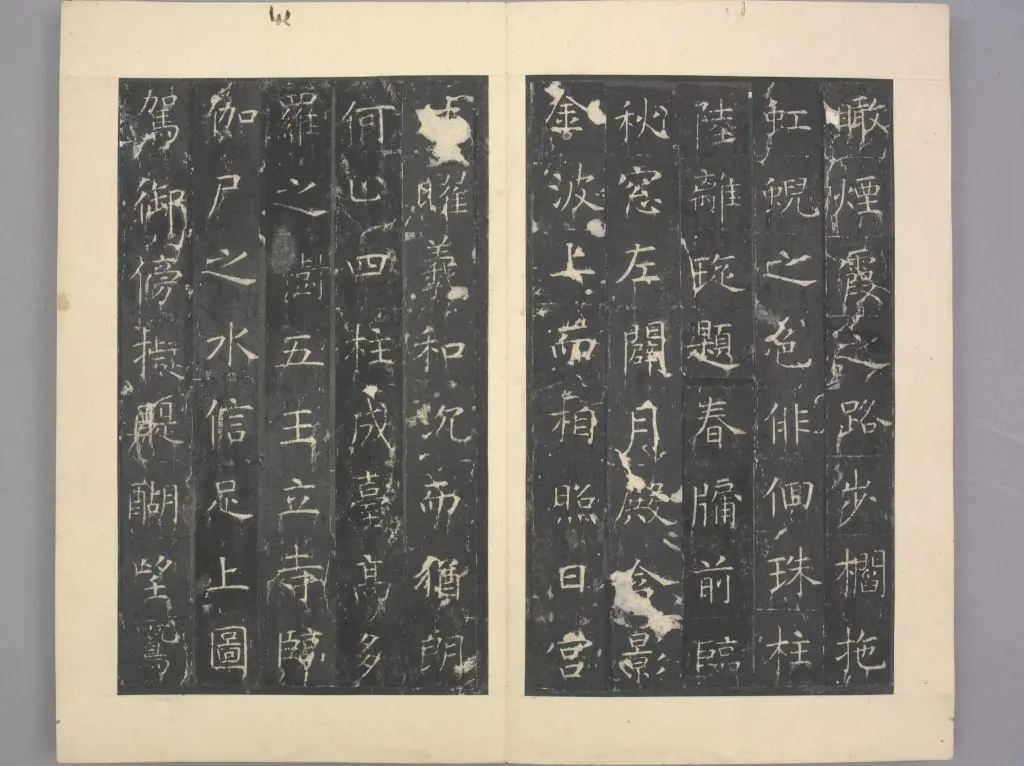 瞰煙霞之路步櫩拖
虹蜺之色俳佪珠柱
陸離琁題春牖前臨
秋窓左闢月殿含影
金波上而相照日宮
曜義和沉而猶朗
何止四柱成臺高多
羅之樹五王立寺隣
伽尸之水信足上圖
駕御傍擬醍醐望鶖